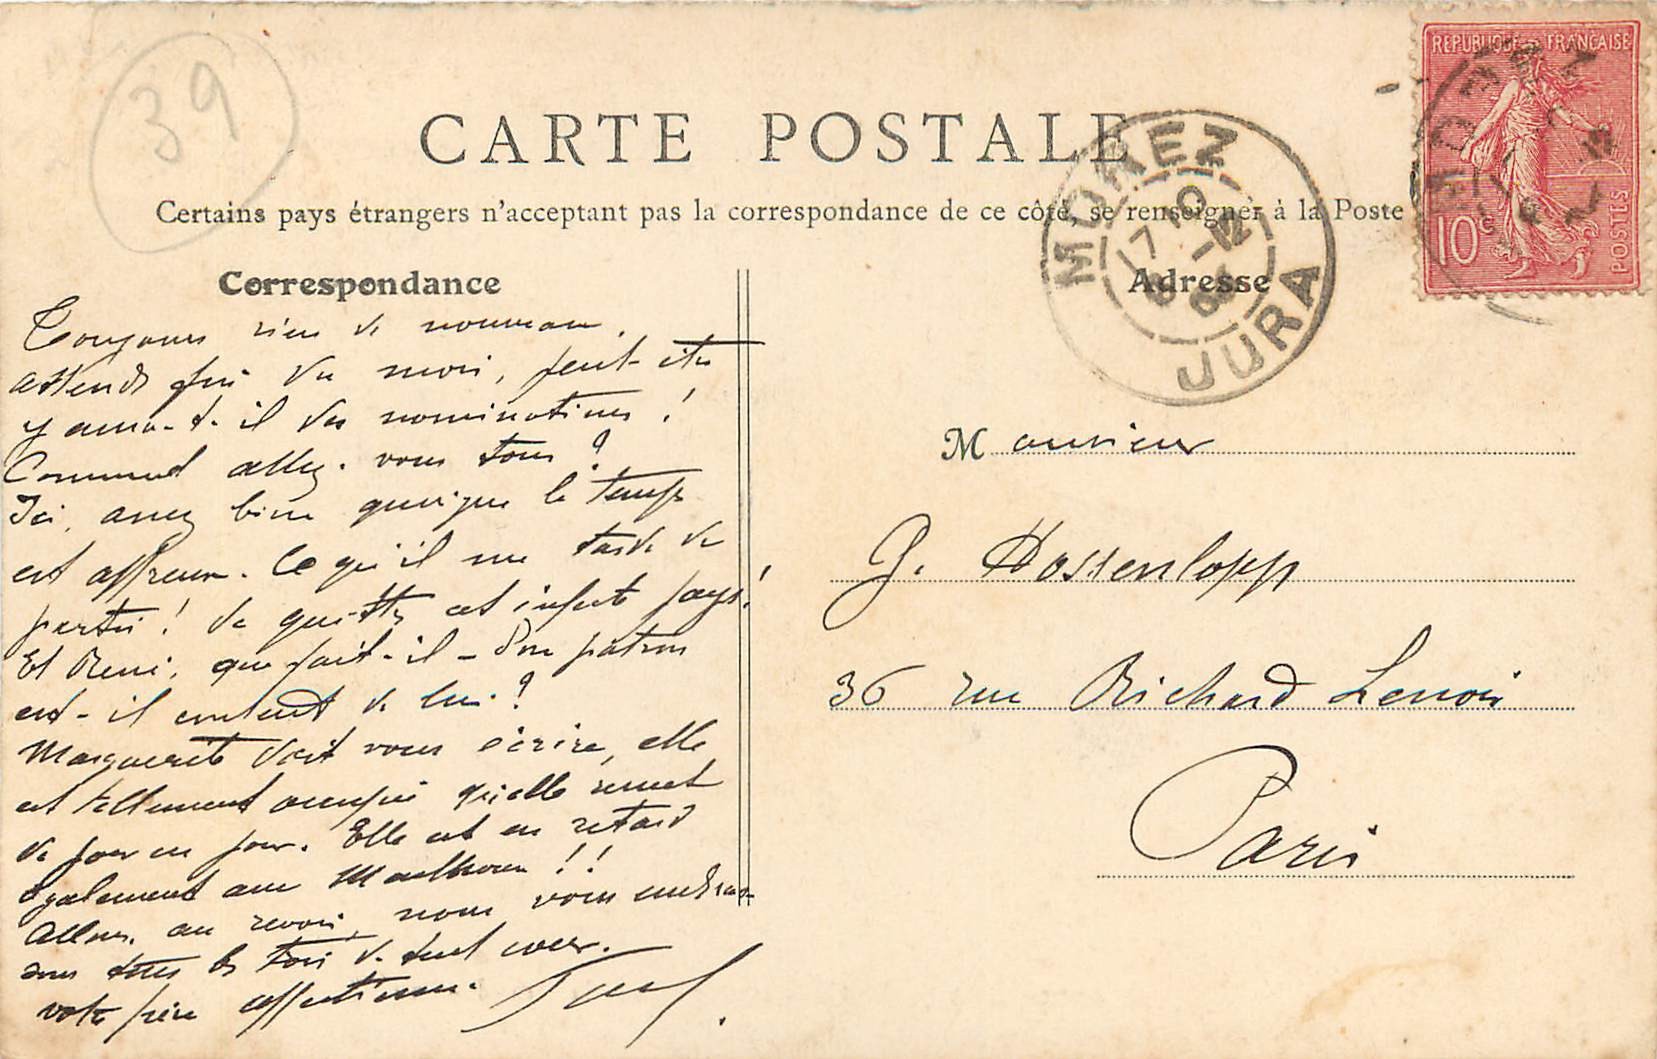 39
CARTE POSTALE
Certains pays étrangers n'acceptent pas la correspondance de ce côté, se renseigner à la Poste
Correspondance
Toujours rien de nouveau.
Attends fin du mois, peut-être
y aura-t-il des nominations !
Comment allez-vous tous ?
Ici, assez bien quoique le temps
est affreux. Ce qu'il me tarde de
partir ! de quitter cet infecte pays !
Et René, que fait-il - Son patron
est-il content de lui ?
Marguerite doit vous écrire, elle
est tellement occupée qu'elle remet
de jour en jour. Elle est en retard
également aux !!
Allons, au revoir, nous vous embras-
sons tous les trois de tout cœur.
votre frère affectionné.
Paul
Adresse
Monsieur
G. Dossenlopp
36 rue Richard Lenoir
Paris
MOREZ
JURA
REPUBLIQUE FRANÇAISE
10c
POSTES